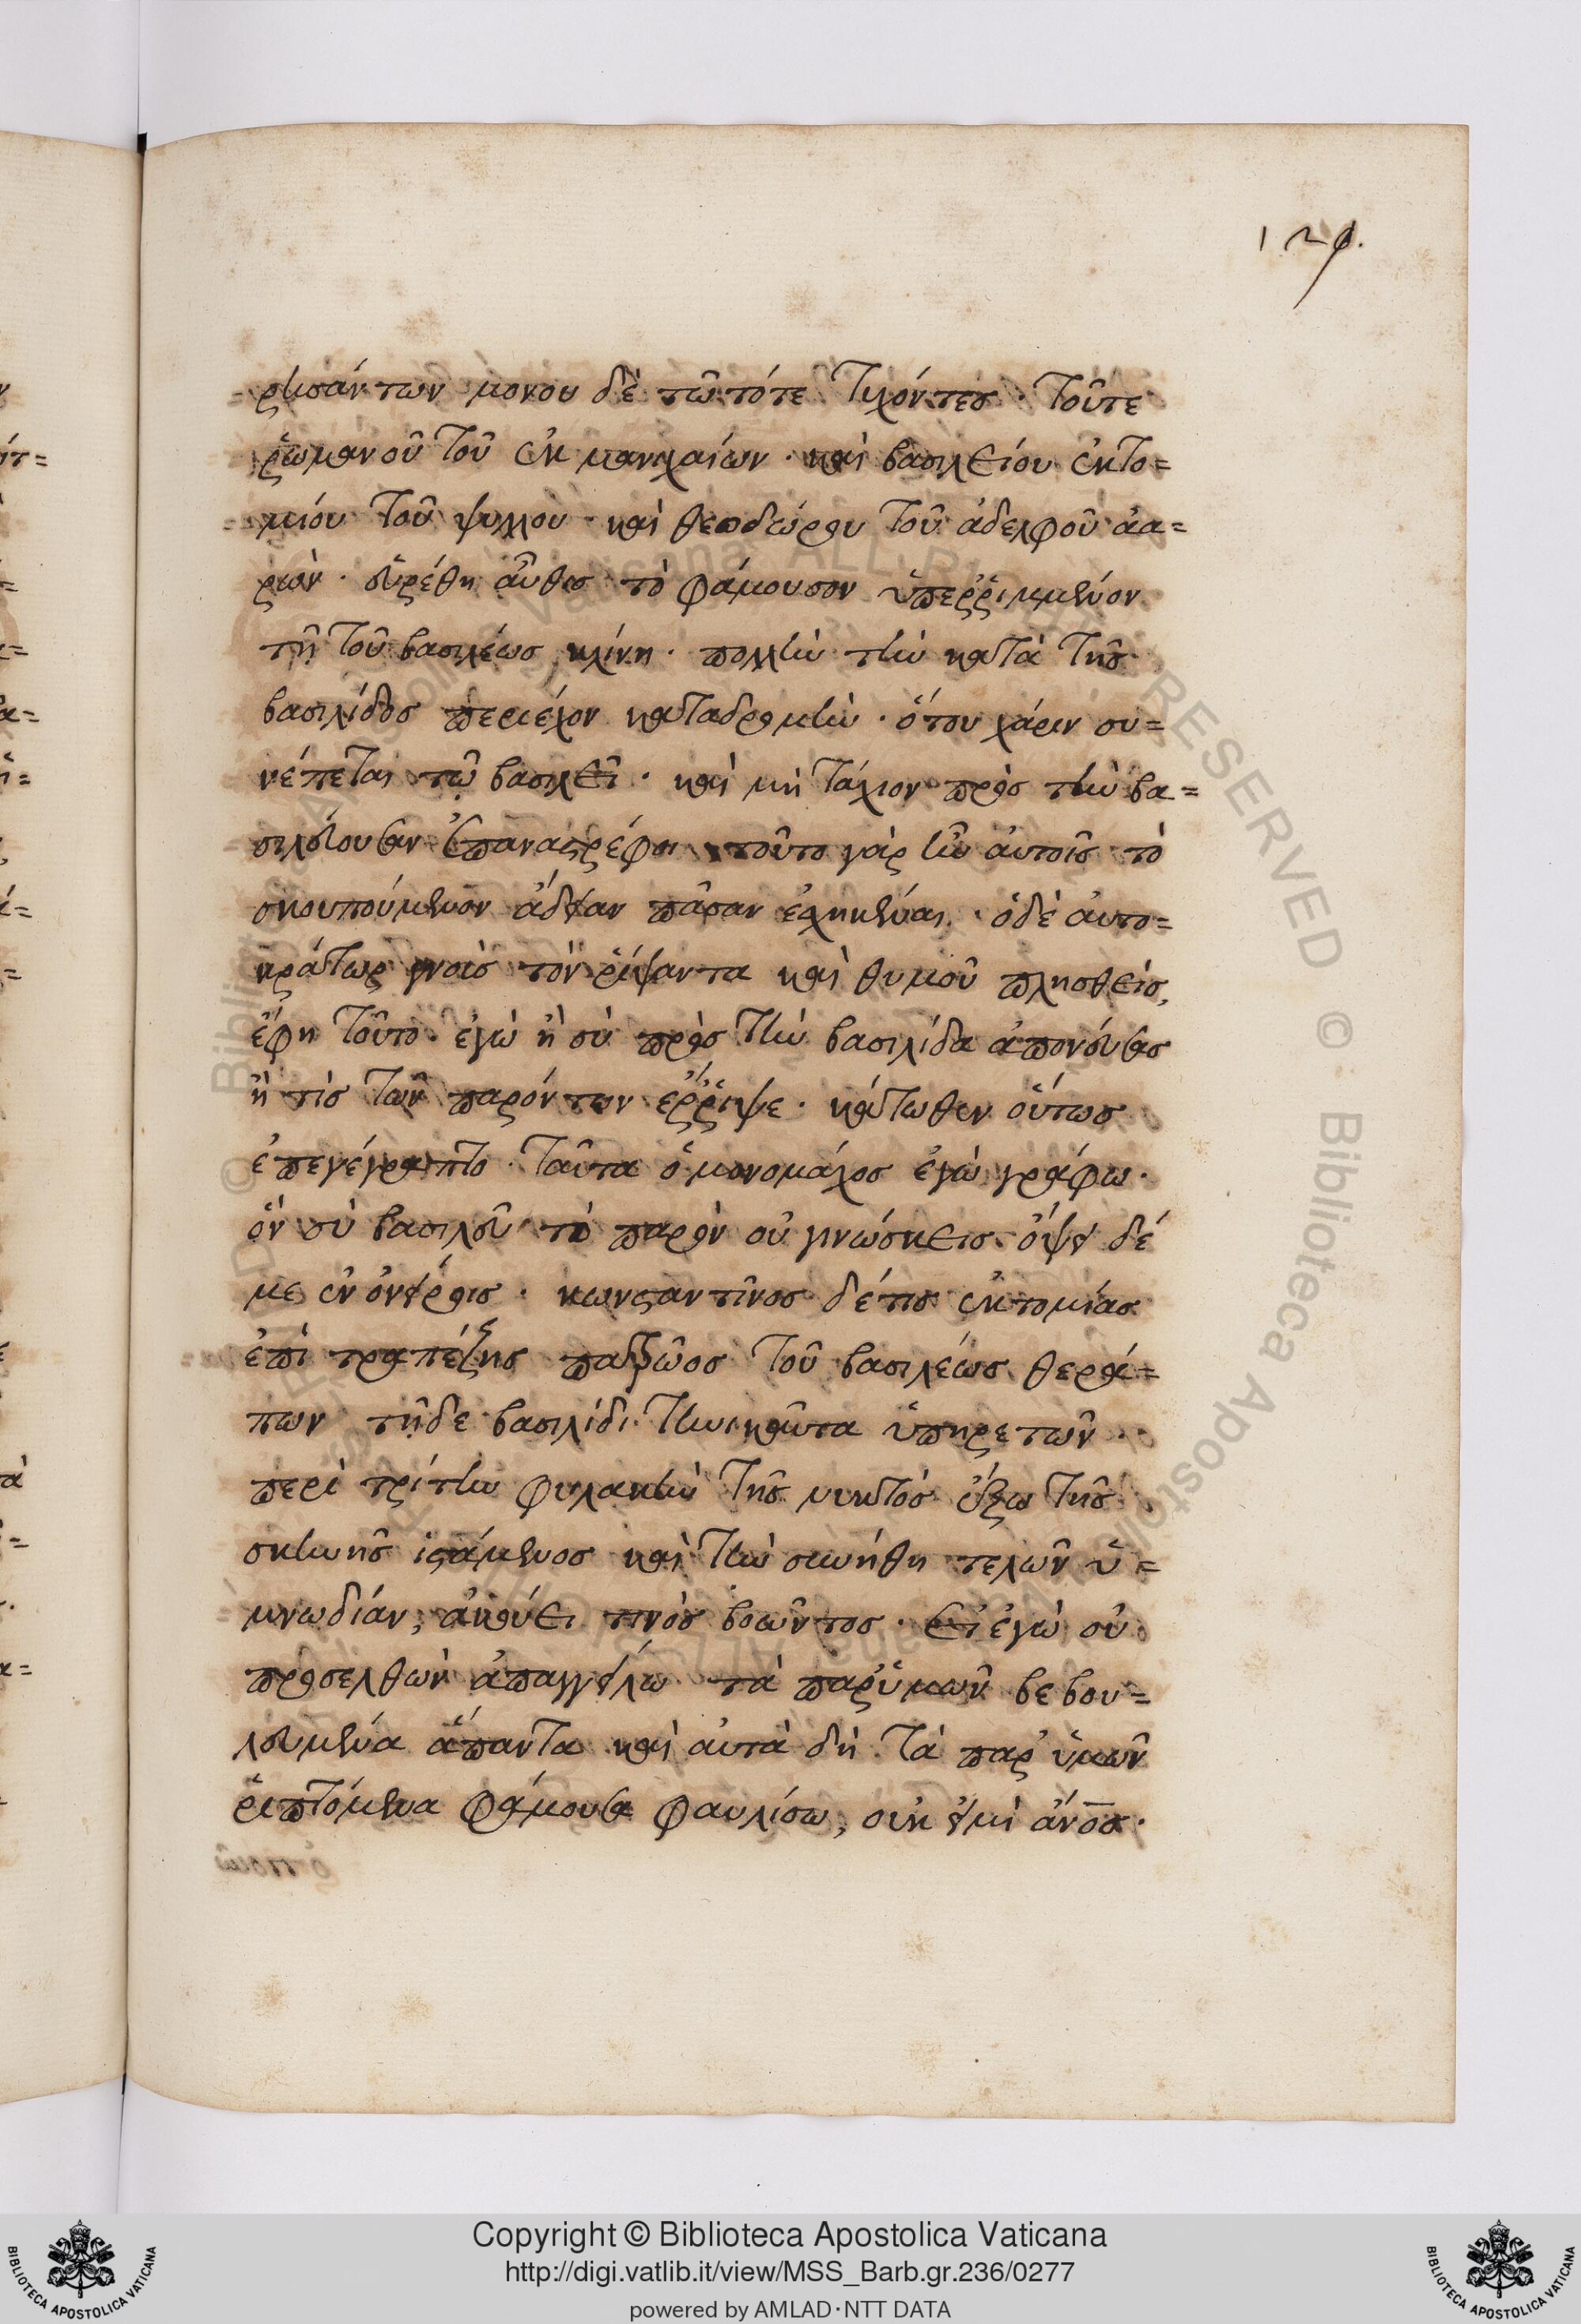 129.
ρησάντων μονου δὲ τῶ τότε τυχόντες · τοῦτε
ῥωμανοῦ τοῦ ἐκ μανιχαίων · καὶ βασιλείου ἐκτο=
μίου τοῦ ψυλλου καὶ θεοδώρου τοῦ ἀδελφοῦ ἀα=
ρὼν · εὑρέθη αὖθις τὸ φάμουσον ὑπερῥιμμένον
τῇ τοῦ βασιλέως κλίνῃ · πολλὴν τὴν κατὰ τῆς
βασιλίδος περιέχον καταδρομὴν · ὅτου χάριν συ=
νέπεται τῷ βασιλεῖ · καὶ μὴ τάχιον πρὸς τὴν βα=
σιλεύουσαν ἐπαναστρέφει τοῦτο γὰρ ἦν αὐτοῖς τὸ
σκουπούμενον ἄδειαν πᾶσαν ἐσχηκέναι · ὁδὲ αὐτο=
κράτωρ γνοὺς τὸν ῥίψαντα καὶ θυμοῦ πλησθεὶς,
ἔφη τοῦτο ἐγὼ ἢ σὺ πρὸς τὴν βασιλίδα ἀπονεύσας
ἢ τὶς τῶν παρόντων ἔῤῥιψε · κάτωθεν οὕτως
ἐπεγέγραπτο · ταῦτα ὁ μονομάχος ἐγὼ γράφω ·
ὃν σὺ βασιλεῦ τὸ παρὸν οὐ γινώσκεις ὄψει δέ
με ἐν ὀνείροις · κωνσταντῖνος δέτις ἐκτομίας
ἐπὶ τραπέζης πατρῶος τοῦ βασιλέως θερά=
πων τῇδε βασιλίδι τηνικαῦτα ὑπηρετῶν ·
περὶ τρίτην φυλακὴν τῆς νυκτὸς ἔξω τῆς
σκηνῆς ἱστάμενος καὶ τὴν συνήθη τελῶν ὑ=
μνωδίαν, ἀκούει τινὸς βοῶντος · εἰ ἐγὼ οὐ
προσελθὼν ἀπαγγείλω τὰ παρ᾽ ὑμῶν βεβου=
λευμένα ἅπαντα καὶ αὐτὰ δὴ τὰ παρ᾽ ὑμῶν
ῥιπτόμενα φάμουσα φαυλίσω, οὐκ εἰμὶ ἄνος ·
Copyright © Biblioteca Apostolica Vaticana
http://digi.vatlib.it/view/MSS_Barb.gr.236/0277
powered by AMLAD·NTT DATA